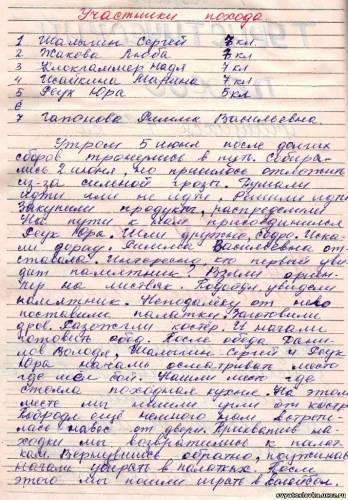 Участники похода
1 Шалыгин Сергей 7 кл.
2 Жакова Люба 7 кл
3 Клокгаммер Надя 7 кл
4 Исайкина Марина 7 кл
5 Реук Юра 5 кл
6
7 Гапонова Римма Васильевна.
Утром 5 июня, после долгих
сборов тронулись в путь. Собира-
лись 2 июня, но пришлось отложить
из-за сильной грозы. Думали
идти или не идти. Решили идти
Закупили продукты, распределили
На пути к нам присоединился
Реук Юра. Шли дружно, бодро. Иска-
ли дорогу. Римма Васильевна от-
ставала. Интересно, кто первый уви
дит памятник? Взяли ориен-
тир на лесок. Подойдя увидели
памятник. Неподалёку от него
поставили палатки Заготовили
дров. Разожгли костёр. И начали
готовить обед. После обеда Дани-
лов Володя, Шалыгин Сергей и Реук
Юра начали осматривать место
где шёл бой. Нашли место где
стояла походная кухня. На этом
месте мы нашли угли от костра
Побродя ещё немного нам встрети-
лась навес от двери. Прихватив на-
ходки мы возвратились к палат-
кам. Вернувшись обратно, поужинав
начали убирать в палатках. После
этого мы пошли играть в волейбол.
svyatoslavka.ucoz.ru